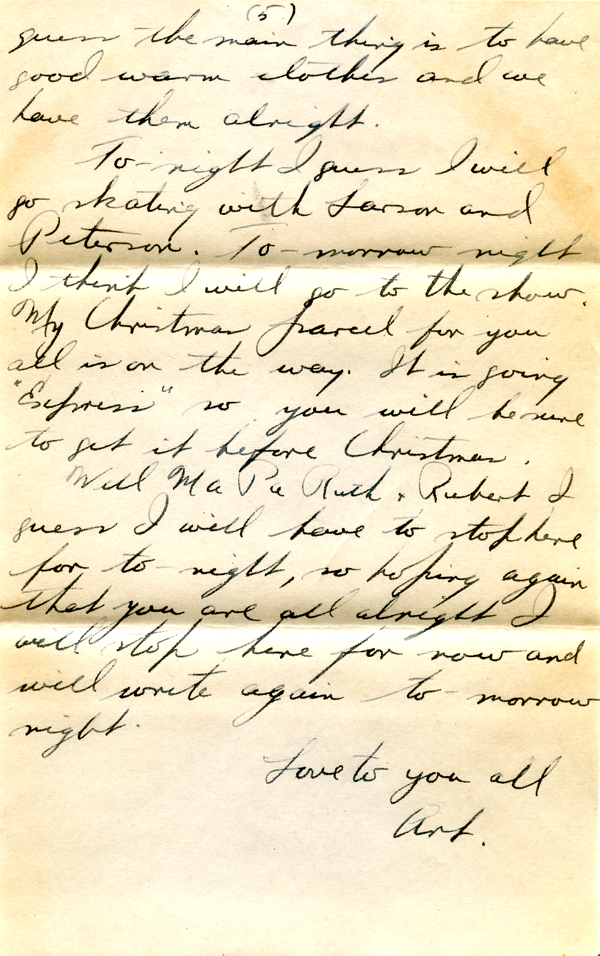 (5)
guess the main thing is to have
good warm clothes and we
have them alright.
To-night I guess I will
go skating with Larson and
Peterson. To-morrow night
I think I will go to the show.
My Christmas parcel for you
all is on the way. It is going
"Express" so you will be sure
to get it before Christmas.
Well Ma Pa Ruth & Rubert I
guess I will have to stop here
for to-night, so hoping again
that you are all alright I
will stop here for now and
will write again to-morrow
night.
Love to you all
Art.